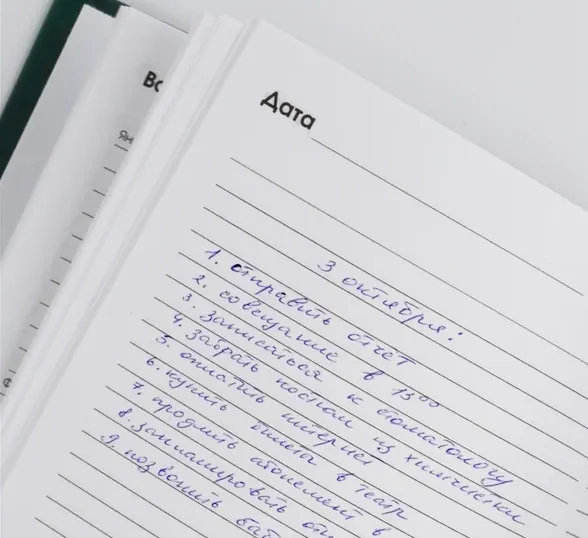 Дата
3 октября:
1. отправить отчет
2. совещание в 13⁰⁰
3. записаться к стоматологу
4. забрать костюм из химчистки
5. оплатить интернет
6. купить билеты в театр
7. продлить абонемент в
8. запланировать
9. позвонить